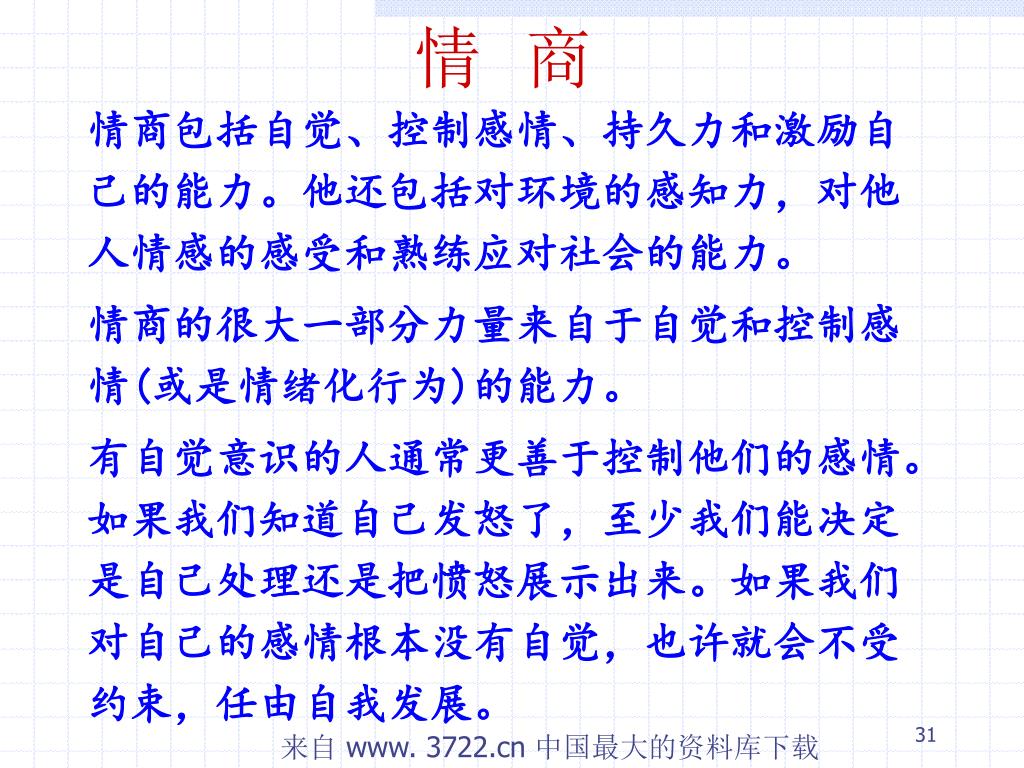 情 商
情商包括自觉、控制感情、持久力和激励自
己的能力。他还包括对环境的感知力，对他
人情感的感受和熟练应对社会的能力。
情商的很大一部分力量来自于自觉和控制感
情(或是情绪化行为)的能力。
有自觉意识的人通常更善于控制他们的感情。
如果我们知道自己发怒了，至少我们能决定
是自己处理还是把愤怒展示出来。如果我们
对自己的感情根本没有自觉，也许就会不受
约束，任由自我发展。
来自 www. 3722.cn 中国最大的资料库下载
31